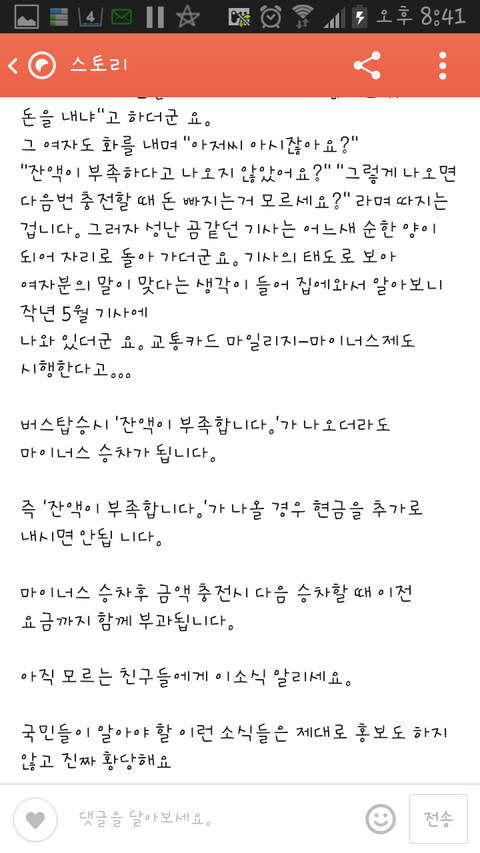 오후 8:41
스토리
돈을 내냐"고 하더군 요.
그 여자도 화를 내며 "아저씨 아시잖아요?"
"잔액이 부족하다고 나오지 않았어요?" "그렇게 나오면
다음번 충전할 때 돈 빠지는거 모르세요?" 라며 따지는
겁니다. 그러자 성난 곰같던 기사는 어느새 순한 양이
되어 자리로 돌아 가더군요. 기사의 태도로 보아
여자분의 말이 맞다는 생각이 들어 집에와서 알아보니
작년 5월 기사에
나와 있더군 요. 교통카드 마일리지-마이너스제도
시행한다고...
버스탑승시 '잔액이 부족합니다.'가 나오더라도
마이너스 승차가 됩니다.
즉 '잔액이 부족합니다.'가 나올 경우 현금을 추가로
내시면 안됩 니다.
마이너스 승차후 금액 충전시 다음 승차할 때 이전
요금까지 함께 부과됩니다.
아직 모르는 친구들에게 이소식 알리세요.
국민들이 알아야 할 이런 소식들은 제대로 홍보도 하지
않고 진짜 황당해요
댓글을 달아보세요.
전송